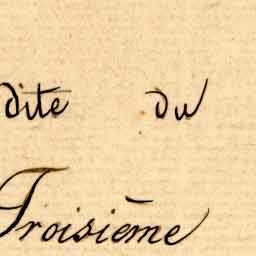 dite du
Troisième